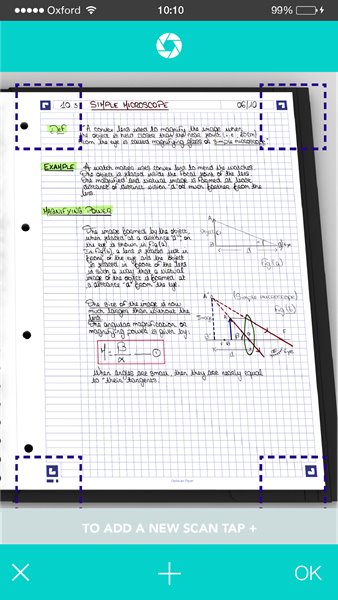 Oxford 10:10 99%
10.5 SIMPLE MICROSCOPE 06/10
DEF "A convex lens used to magnify the image when
the object is held closer than the near point (i.e., 20cm)
from the eye is called magnifying glass or simple microscope."
EXAMPLE A watch maker uses convex lens to mend the watches.
The object is placed inside the focal point of the lens.
The magnified and virtual image is formed at least
distance of distinct vision "d" or much farther from the
lens.
MAGNIFYING POWER
The image formed by the object,
when placed at a distance "d" on
the eye is shown in Fig(a)
In Fig(b), a lens is placed just in
front of the eye and the object
is placed in front of the lens
in such a way that a virtual
image of the object is formed at
a distance "d" from the eye.
A
Object
B
d
Eye
Fig(a)
The size of the image is now
much larger than without the
lens.
The angular magnification or
magnifying power is given by:
M = β/α — ①
When angles are small, then they are nearly equal
to "their" tangents.
(Simple microscope)
Fig(b)
A'
Image
A
B'
F
B
F
d
Eye
Optional Paper
TO ADD A NEW SCAN TAP +
OK